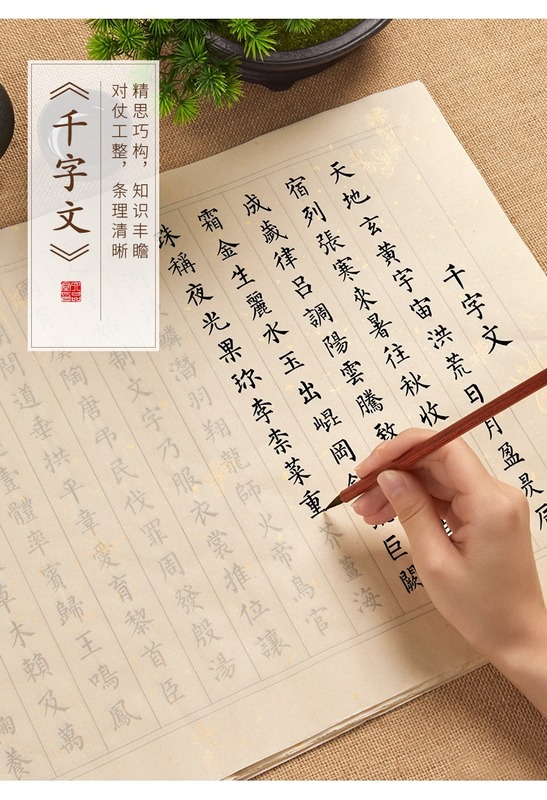 《千字文》
精思巧构，知识丰瞻
对仗工整，条理清晰
千字文
天地玄黃宇宙洪荒日月盈昃辰
宿列張寒來暑往秋收
成歲律呂調陽雲騰致
霜金生麗水玉出崐岡巨闕
珠稱夜光果珍李柰菜重薑海
鱗潛羽翔龍師火帝鳥官
制文字乃服衣裳推位讓
陶唐弔民伐罪周發殷湯
問道垂拱平章愛育黎首臣
壹體率賓歸王鳴鳳
草木賴及萬
鞠養